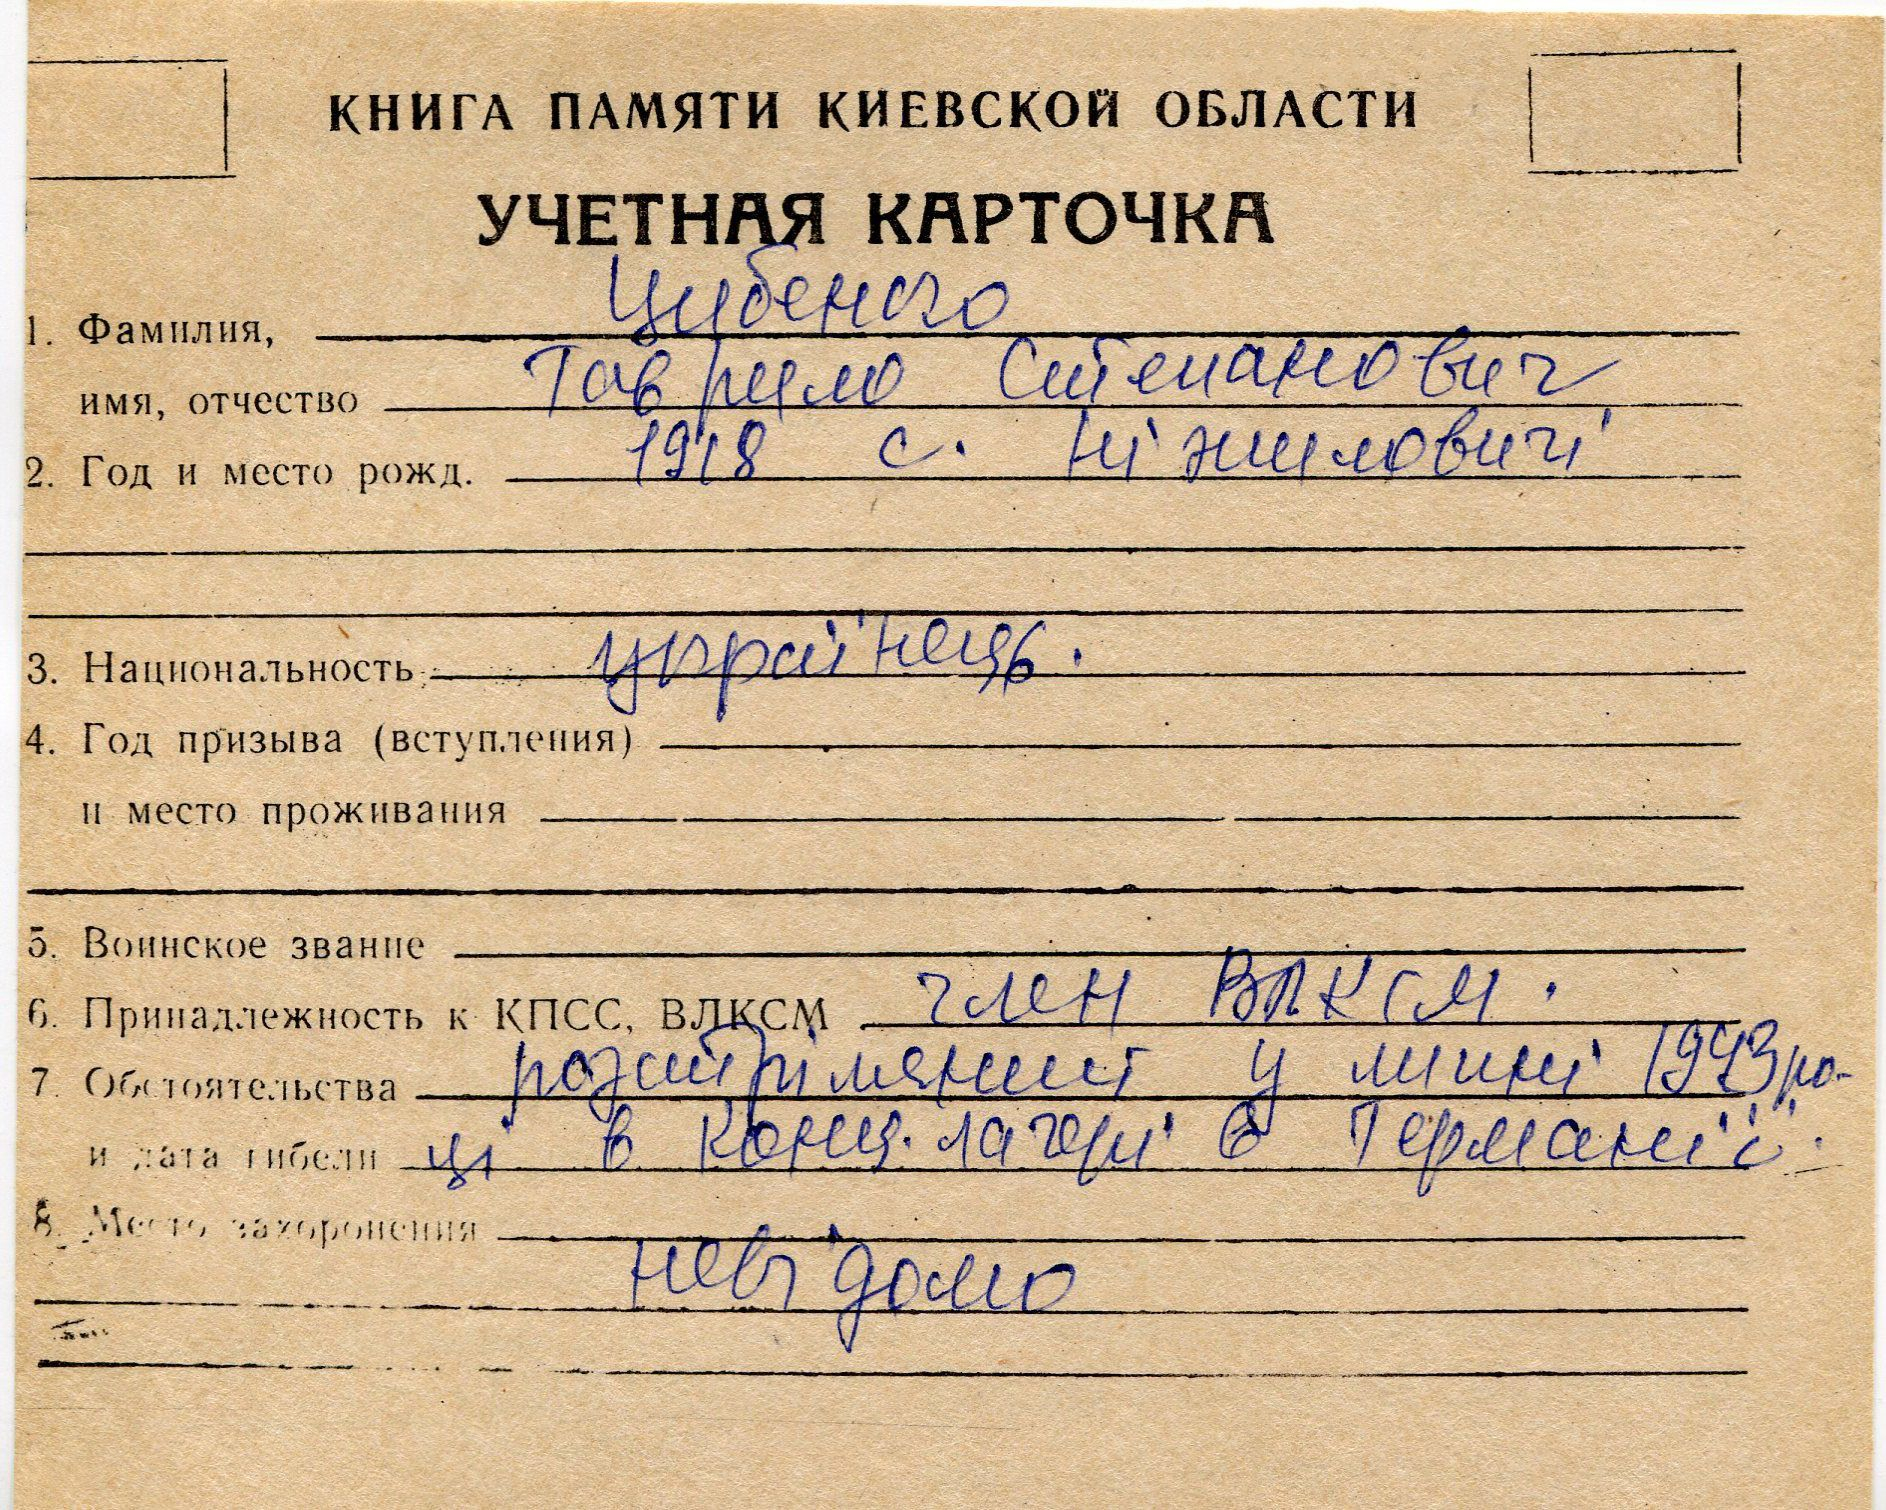 КНИГА ПАМЯТИ КИЕВСКОЙ ОБЛАСТИ
УЧЕТНАЯ КАРТОЧКА
1. Фамилия, Цибенко
имя, отчество Гаврило Степанович
2. Год и место рожд. 1918 с. Ніжиловичі
3. Национальность українець.
4. Год призыва (вступления)
и место проживания
5. Воинское звание
6. Принадлежность к КПСС, ВЛКСМ член ВЛКСМ.
7. Обстоятельства розстріляний у липні 1943 ро-
и дата гибели ці в конц. лагері в Германії.
8. Место захоронения
невідомо